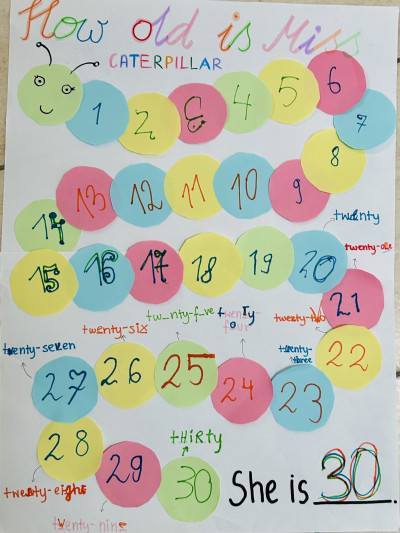 How old is Miss
CATERPILLAR
1 2 3 4 5 6
7
8
13 12 11 10 9
14
twenty
15 16 17 18 19 20
twenty-one
21
tw_nty-f_ve
twenty-four
twenty-two
twenty-six
twenty-three
22
twenty-seven
27 26 25 24 23
28 29 30
thirty
twenty-eight
twenty-nine
She is 30.